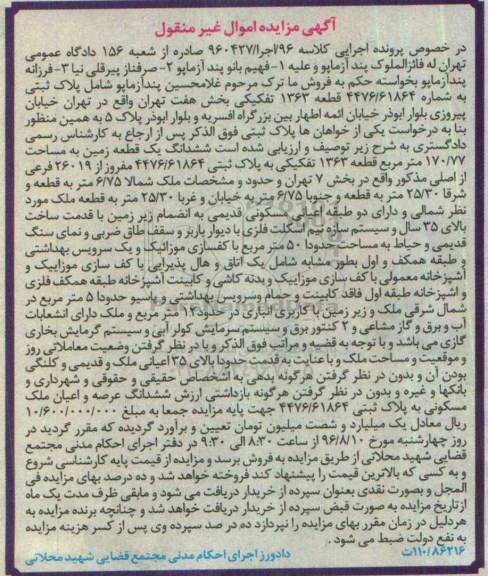 آگهی مزایده اموال غیر منقول
در خصوص پرونده اجرایی کلاسه ۹۶/اجرا/۹۶۰۴۲۷ صادره از شعبه ۱۵۶ دادگاه عمومی
تهران له فائزالملوک پند آزماپو و علیه ۱-فهیم بانو پند آزماپو ۲- صرفناز پیرقلی نیا ۳- فرزانه
پندآزماپو بخواسته حکم به فروش ما ترک مرحوم غلامحسین پندآزماپو شامل پلاک ثبتی
به شماره ۴۴۷۶/۶۱۸۶۴ قطعه ۱۳۶۳ تفکیکی بخش هفت تهران واقع در تهران خیابان
پیروزی بلوار ابوذر خیابان ائمه اطهار بین بزرگراه افسریه و بلوار ابوذر پلاک ۵ به همین منظور
بنا به درخواست یکی از خواهان ها پلاک ثبتی فوق الذکر پس از ارجاع به کارشناس رسمی
دادگستری به شرح زیر توصیف و ارزیابی شده است ششدانگ یک قطعه زمین به مساحت
۱۷۰/۷۷ متر مربع قطعه ۱۳۶۳ تفکیکی به پلاک ثبتی ۴۴۷۶/۶۱۸۶۴ مفروز از ۲۶۰۱۹ فرعی
از اصلی مذکور واقع در بخش ۷ تهران و حدود و مشخصات ملک شمالا ۶/۷۵ متر به قطعه و
شرقا ۲۵/۳۰ متر به قطعه و جنوبا ۶/۷۵ متر به خیابان و غربا ۲۵/۳۰ متر به قطعه ملک مورد
نظر شمالی و دارای دو طبقه اعیانی مسکونی قدیمی به انضمام زیر زمین با قدمت ساخت
بالای ۳۵ سال و سیستم سازه نیم اسکلت فلزی با دیوار باربز و سقف طاق ضربی و نمای سنگ
قدیمی و حیاط به مساحت حدودا ۵۰ متر مربع با کفسازی موزائیک و یک سرویس بهداشتی
و طبقه همکف و اول بطور مشابه شامل یک اتاق و هال پذیرایی با کف سازی موزاییک و
آشپزخانه معمولی با کف سازی موزاییک و بدنه کاشی و کابینت آشپزخانه طبقه همکف فلزی
و اشپزخانه طبقه اول فاقد کابینت و حمام وسرویس بهداشتی و پاسیو حدودا ۵ متر مربع در
شمال شرقی ملک و زیر زمین با کاربری انباری در حدود ۱۲ متر مربع و ملک دارای انشعابات
آب و برق و گاز مشاعی و ۲ کنتور برق و سیستم سرمایش کولر آبی و سیستم گرمایش بخاری
گازی می باشد و با توجه به قضیه و مراتب فوق الذکر و با در نظر گرفتن وضعیت معاملاتی روز
و موقعیت و مساحت ملک و با عنایت به قدمت حدودا بالای ۳۵ اعیانی ملک و قدیمی و کلنگی
بودن آن و بدون در نظر گرفتن هرگونه بدهی به اشخاص حقیقی و حقوقی و شهرداری و
بانکها و غیره و بدون در نظر گرفتن هرگونه بازداشتی ارزش ششدانگ عرصه و اعیان ملک
مسکونی به پلاک ثبتی ۴۴۷۶/۶۱۸۶۴ جهت پایه مزایده جمعا به مبلغ ۱۰/۶۰۰/۰۰۰/۰۰۰
ریال معادل یک میلیارد و شصت میلیون تومان تعیین و برآورد گردیده که مقرر گردید در
روز چهارشنبه مورخ ۹۶/۸/۱۰ از ساعت ۸:۳۰ الی ۹:۳۰ در دفتر اجرای احکام مدنی مجتمع
قضایی شهید محلاتی از طریق مزایده به فروش برسد و مزایده از قیمت پایه کارشناسی شروع
و به کسی که بالاترین قیمت را پیشنهاد کند فروخته خواهد شد و ده درصد بهای مزایده فی
المجل و بصورت نقدی بعنوان سپرده از خریدار دریافت می شود و مابقی ظرف مدت یک ماه
از تاریخ مزایده به صورت قبض سپرده از خریدار دریافت خواهد شد و چنانچه برنده مزایده به
هردلیل در زمان مقرر بهای مزایده را نپردازد ده در صد سپرده وی پس از کسر هزینه مزایده
به نفع دولت ضبط می شود .
۱۱۰/۸۶۲۱۶ت دادورز اجرای احکام مدنی مجتمع قضایی شهید محلاتی